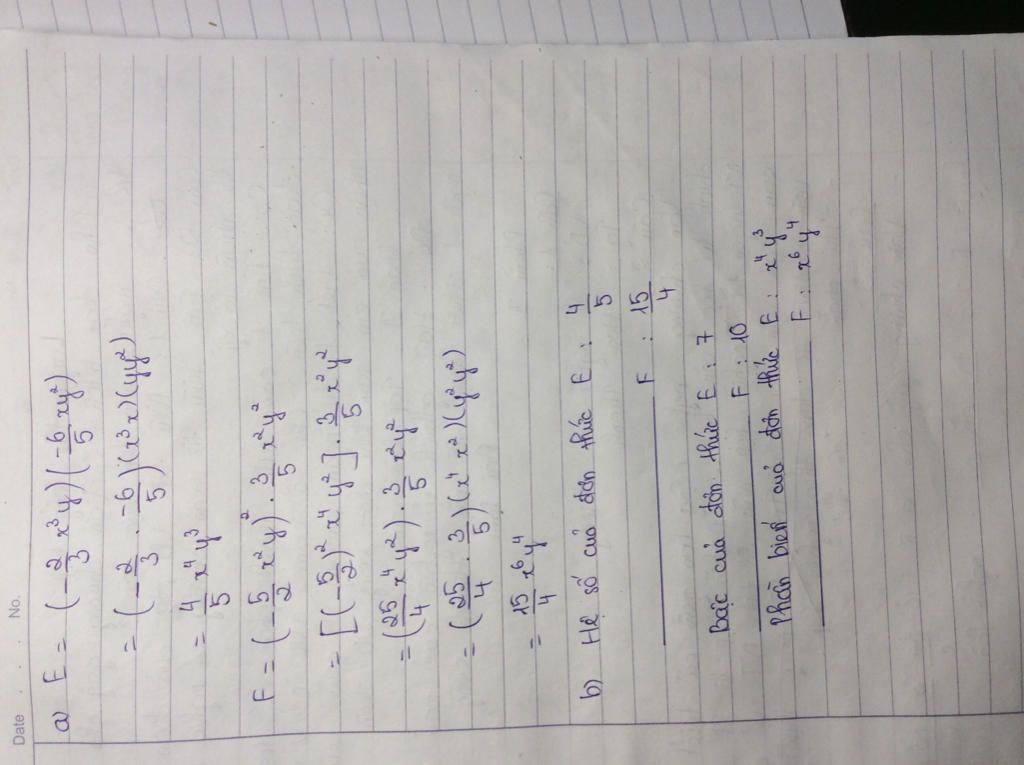 Date . . No.
a) E = (-2/3 x³y)(-6/5 xy²)
= (-2/3 . -6/5)(x³x)(yy²)
= 4/5 x⁴y³
F = (-5/2 x²y)² . 3/5 x²y²
= [(-5/2)² x⁴y²] . 3/5 x²y²
= (25/4 x⁴y²) . 3/5 x²y²
= (25/4 . 3/5)(x⁴x²)(y²y²)
= 15/4 x⁶y⁴
b) Hệ số của đơn thức E : 4/5
F : 15/4
Bậc của đơn thức E : 7
F : 10
Phần biến của đơn thức E : x⁴y³
F : x⁶y⁴